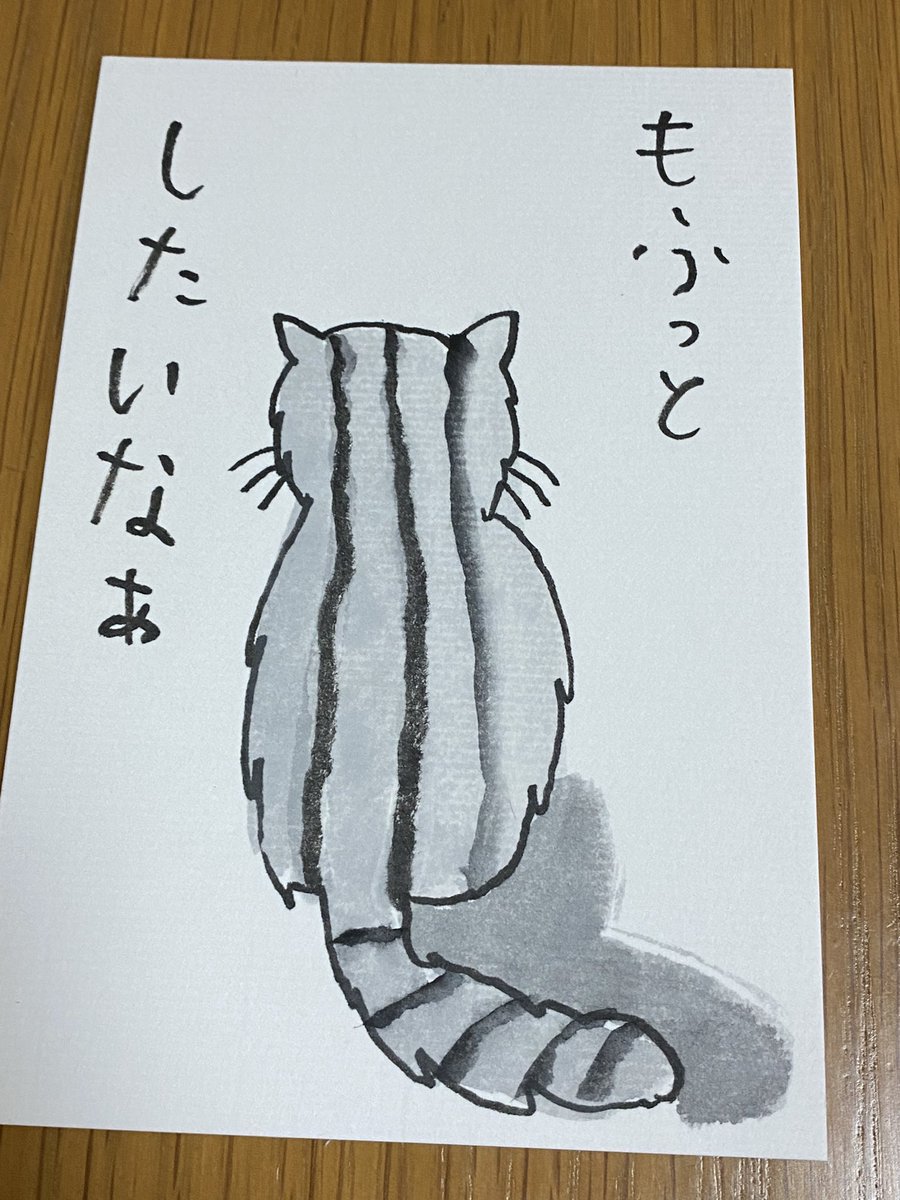 もふっと
したいなぁ